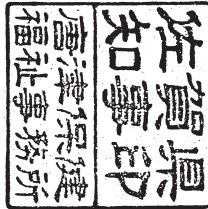 佐賀県
知事印
唐津保健
福祉事務所